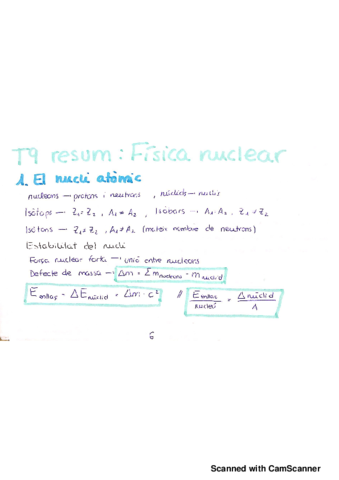 T9 resum: Física nuclear
1. El nucli atòmic
nucleons — protons i neutrons, núclids — nuclis
Isòtops — Z₁ = Z₂, A₁ ≠ A₂, Isòbars — A₁ = A₂, Z₁ ≠ Z₂
Isòtons — Z₁ ≠ Z₂, A₁ ≠ A₂ (mateix nombre de neutrons)
Estabilitat del nucli
Força nuclear forta → unió entre nucleons
Defecte de massa → Δm = Σm nucleons - m núclid
E enllaç = ΔE núclid = Δm · c² // E enllaç / nucleó = Δ núclid / A
Scanned with CamScanner